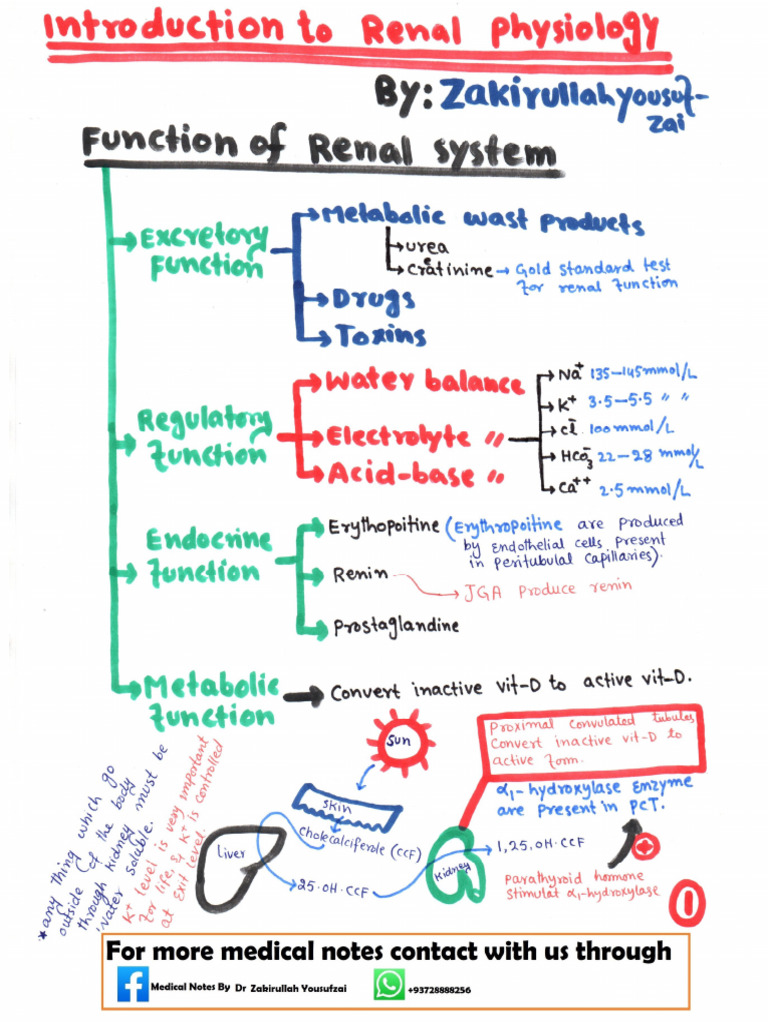 Introduction to Renal Physiology
By: Zakirullah yousuf-
zai
Function of Renal system
Excretory
Function
Metabolic wast products
urea
Creatinine → Gold standard test
for renal function
Drugs
Toxins
Regulatory
function
Water balance
Electrolyte "
Acid-base "
Na⁺ 135-145 mmol/L
K⁺ 3.5-5.5 " "
Cl⁻ 100 mmol/L
HCO₃⁻ 22-28 mmol/L
Ca⁺⁺ 2.5 mmol/L
Endocrine
function
Erythopoitine (Erythropoitine are produced
by endothelial cells present
in peritubular capillaries).
Renin
JGA produce renin
Prostaglandine
Metabolic
function
Convert inactive vit-D to active vit-D.
* any thing which go
outside of the body
through kidney must be
water soluble.
K⁺ level is very important
for life, & K⁺ is controlled
at Exit level.
Sun
Skin
cholecalciferole (CCF)
liver
25.OH.CCF
kidney
1,25,OH.CCF
Proximal convulated tubules
Convert inactive vit-D to
active form.
α₁-hydroxylase enzyme
are present in PCT.
+
Parathyroid hormone
stimulat α₁-hydroxylase
1
For more medical notes contact with us through
Medical Notes By Dr Zakirullah Yousufzai
+93728888256